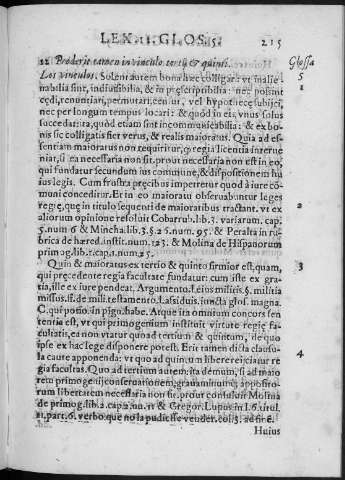 LEX. II. GLOS. 5. 215
12 Prodest tamen in vinculo tertij & quinti. Glossa
Los vinculos. Solent autem bona hæc colligari vt inalie- 5
nabilia sint, indiuisibilia, & in pręscriptibilia: nec possint 1
cędi, renuntiari, permutari, cen.ui, vel hypothecę subijci,
nec per longum tempus locari: & quòd in eis, vnus solus
succedat: ita, quòd etiam sint incommunicabilia: & ex bo-
nis sic colligatis fiet verus, & realis maioratus. Quia ad es-
sentiam maioratus non requiritur, quę regia licentia interue
niat, si ea necessaria non sit. prout necessaria non est in eo,
qui fundatur secundum ius commune, & dispositionem hu
ius legis. Cum frustra pręcibus impetretur quod à iure cõ-
muni conceditur. Et in eo maioratu obseruabuntur leges
regię, quę in titulo sequenti de maioratibus tractant. vt ex 2
aliorum opinione resoluit Cobarrub. lib. 3. variarum. cap.
5. num 6 & Mincha. lib. 3. §. 26. num. 95. & Peralta in ru-
brica de hæred. instit. num. 123. & Molina de Hispanorum
primog. lib. 1. cap. 1. num. 25.
Quin & maioratus ex tertio & quinto firmior est, quam, 3
qui pręcedente regia facultate fundatur: cum iste ex gra-
tia, ille ex iure pendeat. Argumento. l. eius militis. §. militia
missus. ff. de mili. testamento. l. assiduis, iuncta glos. magna.
C. qui potio. in pign. habe. Atque ita omnium concors sen
tentia est, vt qui primogenium instituit virtute regię fa-
cultatis, ea non vtatur quoad tertium & quintum, de quo
ipse ex hac lege disponere potest. Erit tamen dicta clausu-
la caute apponenda: vt quo ad quintum libere reijciatur re 4
gia facultas. Quo ad tertium autem, ita demum, si ad maio
rem primogenij conseruationem, grauaminumq; appositio-
rum libertatem necessaria non sit. prout consuluit Molina
de primog. lib. 2. cap. 2. nu. 11 & Gregor. Lupus in l. 6. titul.
11. part. 6. verbo que no la pudiesse vender. col. 3. ad fin. 6.
Huius